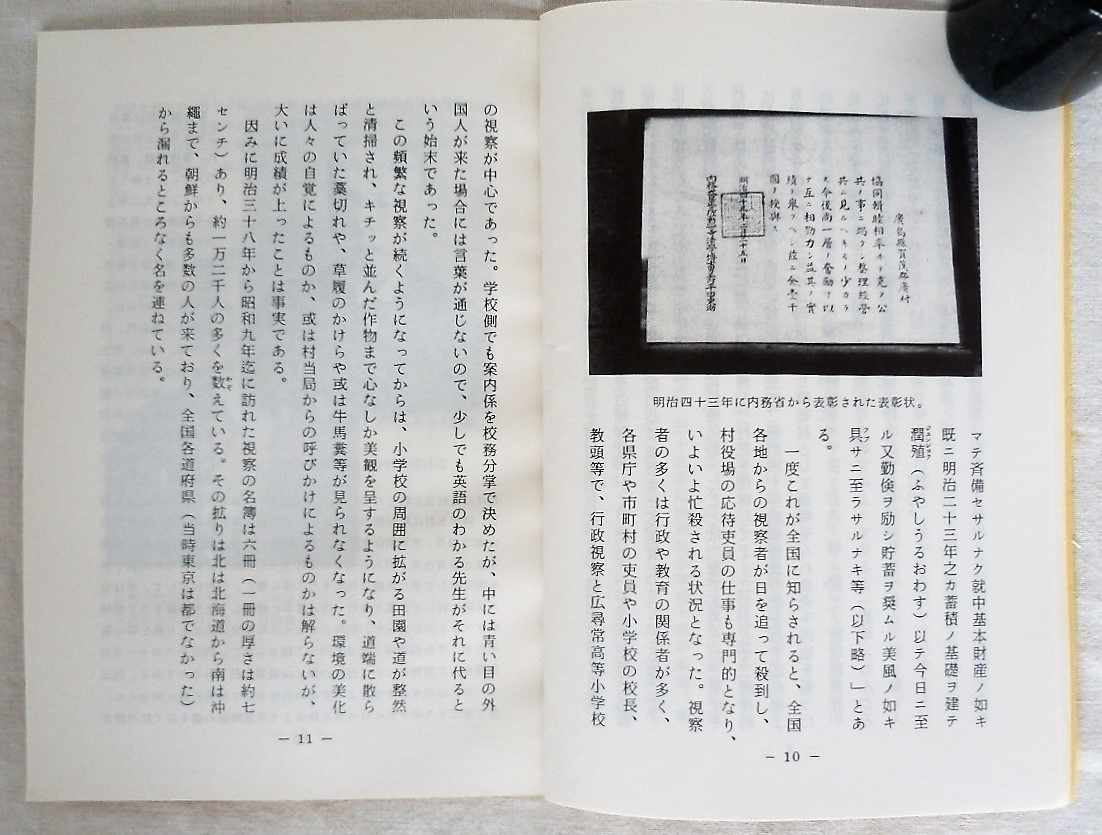 廣島縣賀茂郡廣村
協同輯睦相率ヰテ克ク公
共ノ事ニ竭シ整理經營
共ニ見ルヘキモノ少カラ
ス今後尚一層ノ奮勵ヲ以
テ互ニ相協力シ益其ノ實
績ヲ擧クヘシ茲ニ金壱千
圓ヲ授與ス
明治四十三年二月二十五日
明治四十三年に内務省から表彰された表彰状。
マテ斉備セサルナク就中基本財産ノ如キ
既ニ明治二十三年之カ蓄積ノ基礎ヲ建テ
潤殖（ふやしうるおわす）以テ今日ニ至
ル又勤倹ヲ励シ貯蓄ヲ奨ムル美風ノ如キ
具サニ至ラサルナキ等（以下略）」とあ
る。
一度これが全国に知らされると、全国
各地からの視察者が日を追って殺到し、
村役場の応待吏員の仕事も専門的となり、
いよいよ忙殺される状況となった。視察
者の多くは行政や教育の関係者が多く、
各県庁や市町村の吏員や小学校の校長、
教頭等で、行政視察と広尋常高等小学校
― 10 ―
の視察が中心であった。学校側でも案内係を校務分掌で決めたが、中には青い目の外
国人が来た場合には言葉が通じないので、少しでも英語のわかる先生がそれに代ると
いう始末であった。
この頻繁な視察が続くようになってからは、小学校の周囲に拡がる田園や道が整然
と清掃され、キチッと並んだ作物まで心なしか美観を呈するようになり、道端に散ら
ばっていた藁切れや、草履のかけらや或は牛馬糞等が見られなくなった。環境の美化
は人々の自覚によるものか、或は村当局からの呼びかけによるものかは解らないが、
大いに成績が上ったことは事実である。
因みに明治三十八年から昭和九年迄に訪れた視察の名簿は六冊（一冊の厚さは約七
センチ）あり、約一万二千人の多くを数えている。その拡りは北は北海道から南は沖
繩まで、朝鮮からも多数の人が来ており、全国各道府県（当時東京は都でなかった）
から漏れるところなく名を連ねている。
― 11 ―